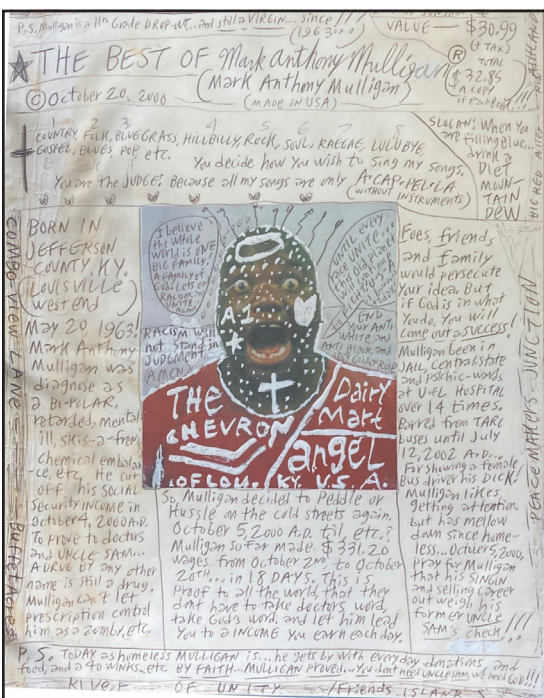 P.S. Mulligan is a 11th Grade DROP-OUT...and still a VIRGIN... since !!!
(1963...)
VALUE — $30.99
(& TAX)
TOTAL
$32.85
a copy
if eat Beef...!!!
THE BEST OF Mark Anthony Mulligan ®
(Mark Anthony Mulligan)
© October 20, 2000
(MADE IN USA)
1 2 3 4 5 6 7 8
COUNTRY, FOLK, BLUEGRASS, HILLBILLY, ROCK, SOUL, RAEGAE, LULUBYE
GOSPEL, BLUES, POP etc.
You decide how you wish to sing my songs.
You are the JUDGE! Because all my songs are only A-CAP-PEL-LA
(WITHOUT INSTRUMENTS)
SLOGAN: When You
are filling Blue...
drink a
DIET
MOUN-
TAIN
DEW
BIG RED ALLEY
BORN IN
JEFFERSON
COUNTY, KY.
(LOUISVILLE
west end)
May 20, 1963!
Mark Anthony
Mulligan was
diagnose as
a BI-POLAR,
retarded, mental
ill, skis-a-fren,
Chemical embalan
-ce, etc. He cut
off his Social
Security INCOME in
October 4, 2000 A.D.
To prove to doctors
and UNCLE SAM...
A DRUG BY any other
name is still a drug.
Mulligan can't let
prescription control
him as a zomby, etc.
COMBO View LANE
Buffet Acres
I believe
the whole
world is ONE
BIG FAMILY.
A Family of
God. Lets end
RACISM and
UNITE
AGAIN
RACISM will
not stand in
JUDGMENT
AMEN
Until every
race UNITE...
END YOUR ANTI
WHITE and
ANTI Black, and
A1
THE
CHEVRON
Dairy
Mart
angel
OF LOU., KY. U.S.A.
Foes, friends
and family
would persecute
your idea. But
if God is in what
You do, You will
come out a success!
Mulligan been in
JAIL, Central state
and Psichic-wards
at U of L HOSPITAL
over 14 times.
Barred from TARC
buses until July
12, 2002 A.D...
For showing a female
Bus driver his DICK!
Mulligan likes
getting attention
but has mellow
down since home-
less... October 5, 2000,
pray for Mulligan
that his SINGIN
and selling career
out weigh his
former UNCLE
SAM's check!!!
PEACE MAKERS JUNCTION
So Mulligan decided to Peddle or
Hussle on the cold streets again.
October 5, 2000 A.D. til, etc.!
Mulligan so far made $331.20
wages from October 2nd to October
20th... in 18 DAYS. This is
proof to all the world, that they
dont have to take doctors word,
take God's word, and let him lead
You to a INCOME you earn each day.
P.S. TODAY as homeless MULLIGAN is... he gets by with every day donations, and
food, and a 40 winks, etc BY FAITH... MULLIGAN proved... You dont need UNCLE SAM, we need GOD!!!
RIVER OF UNITY / Friends ISLAND